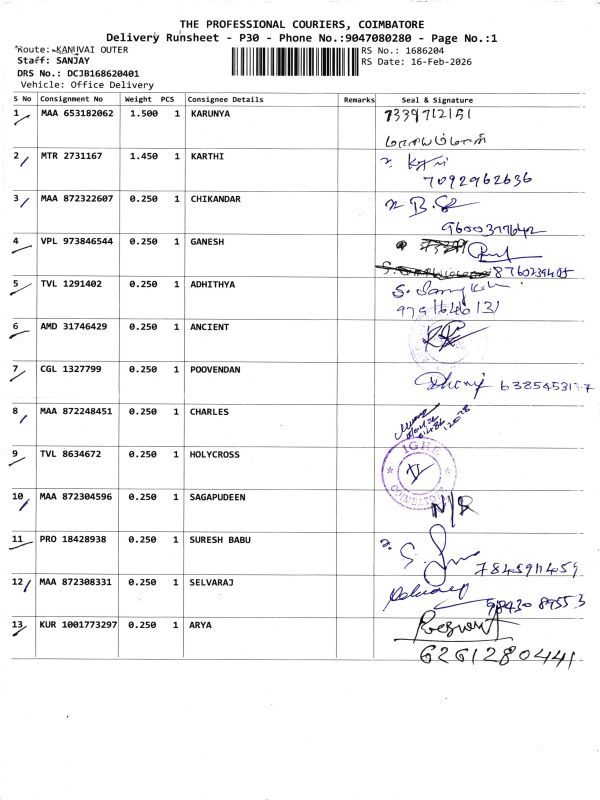 THE PROFESSIONAL COURIERS, COIMBATORE
Delivery Runsheet - P30 - Phone No.:9047080280 - Page No.:1
Route: KANUVAI OUTER
RS No.: 1686204
Staff: SANJAY
RS Date: 16-Feb-2026
DRS No.: DCJB168620401
Vehicle: Office Delivery
S No Consignment No Weight PCS Consignee Details Remarks Seal & Signature
1 MAA 653182062 1.500 1 KARUNYA 7339712151
2 MTR 2731167 1.450 1 KARTHI
7092962636
3 MAA 872322607 0.250 1 CHIKANDAR
9600377642
4 VPL 973846544 0.250 1 GANESH
5 TVL 1291402 0.250 1 ADHITHYA
6 AMD 31746429 0.250 1 ANCIENT
7 CGL 1327799 0.250 1 POOVENDAN
8 MAA 872248451 0.250 1 CHARLES
9 TVL 8634672 0.250 1 HOLYCROSS
10 MAA 872304596 0.250 1 SAGAPUDEEN N/R
11 PRO 18428938 0.250 1 SURESH BABU
7845911459
12 MAA 872308331 0.250 1 SELVARAJ
98430 89553
13 KUR 1001773297 0.250 1 ARYA
6261280441